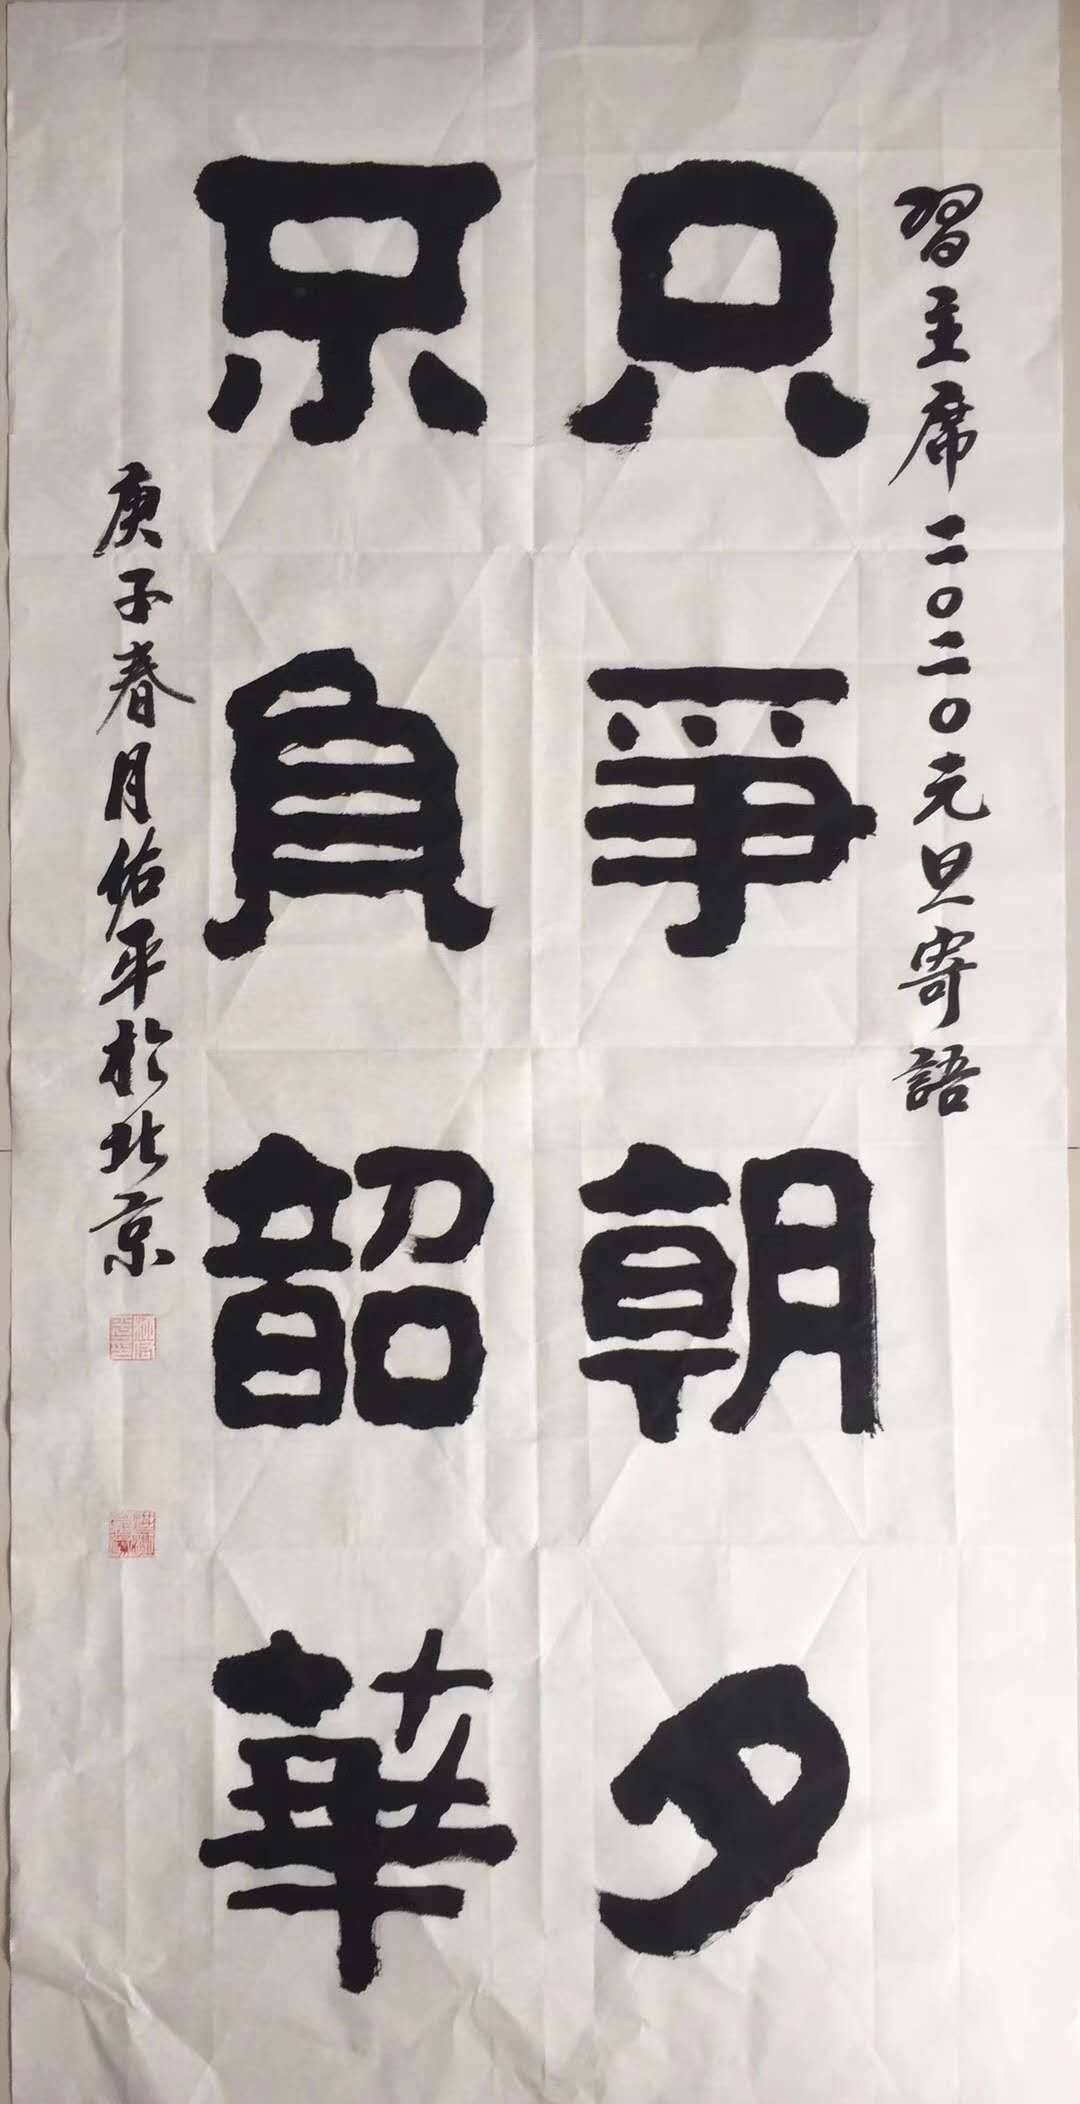 習主席二〇二〇元旦寄語
只爭朝夕
不負韶華
庚子春月佑平於北京